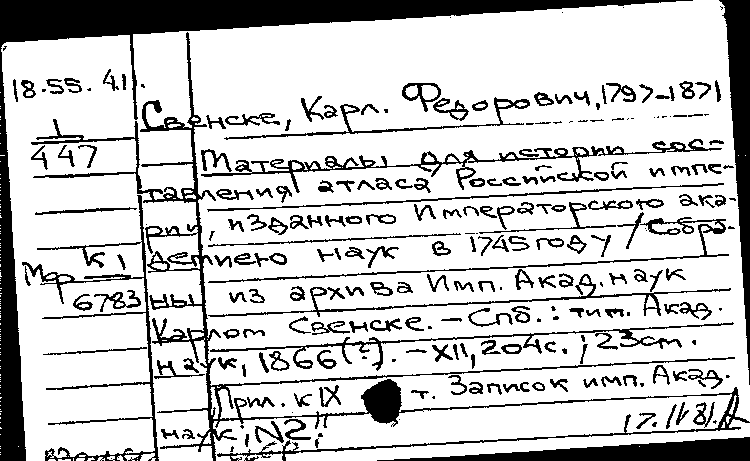 18.55.411.
Свенске, Карл. Федорович, 1797-1871
1
447
Материалы для истории сос-
тавления атласа Российской импе-
рии, изданного Императорскою ака-
демиею наук в 1745 году / Собра-
Мф К 1
6783
ны из архива Имп. Акад. наук
Карлом Свенске. – Спб. : тип. Акад.
наук, 1866 (?). – XII, 204 с. ; 23 cm.
Прил. к IX т. Записок имп. Акад.
наук, N2,"
17.IV 81.